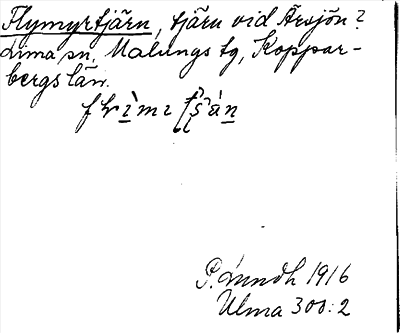 Flymyrtjärn, tjärn vid Ärsjön?
Lima sn, Malungs tg, Koppar-
bergs län.
P. Lundh 1916
Ulma 300:2